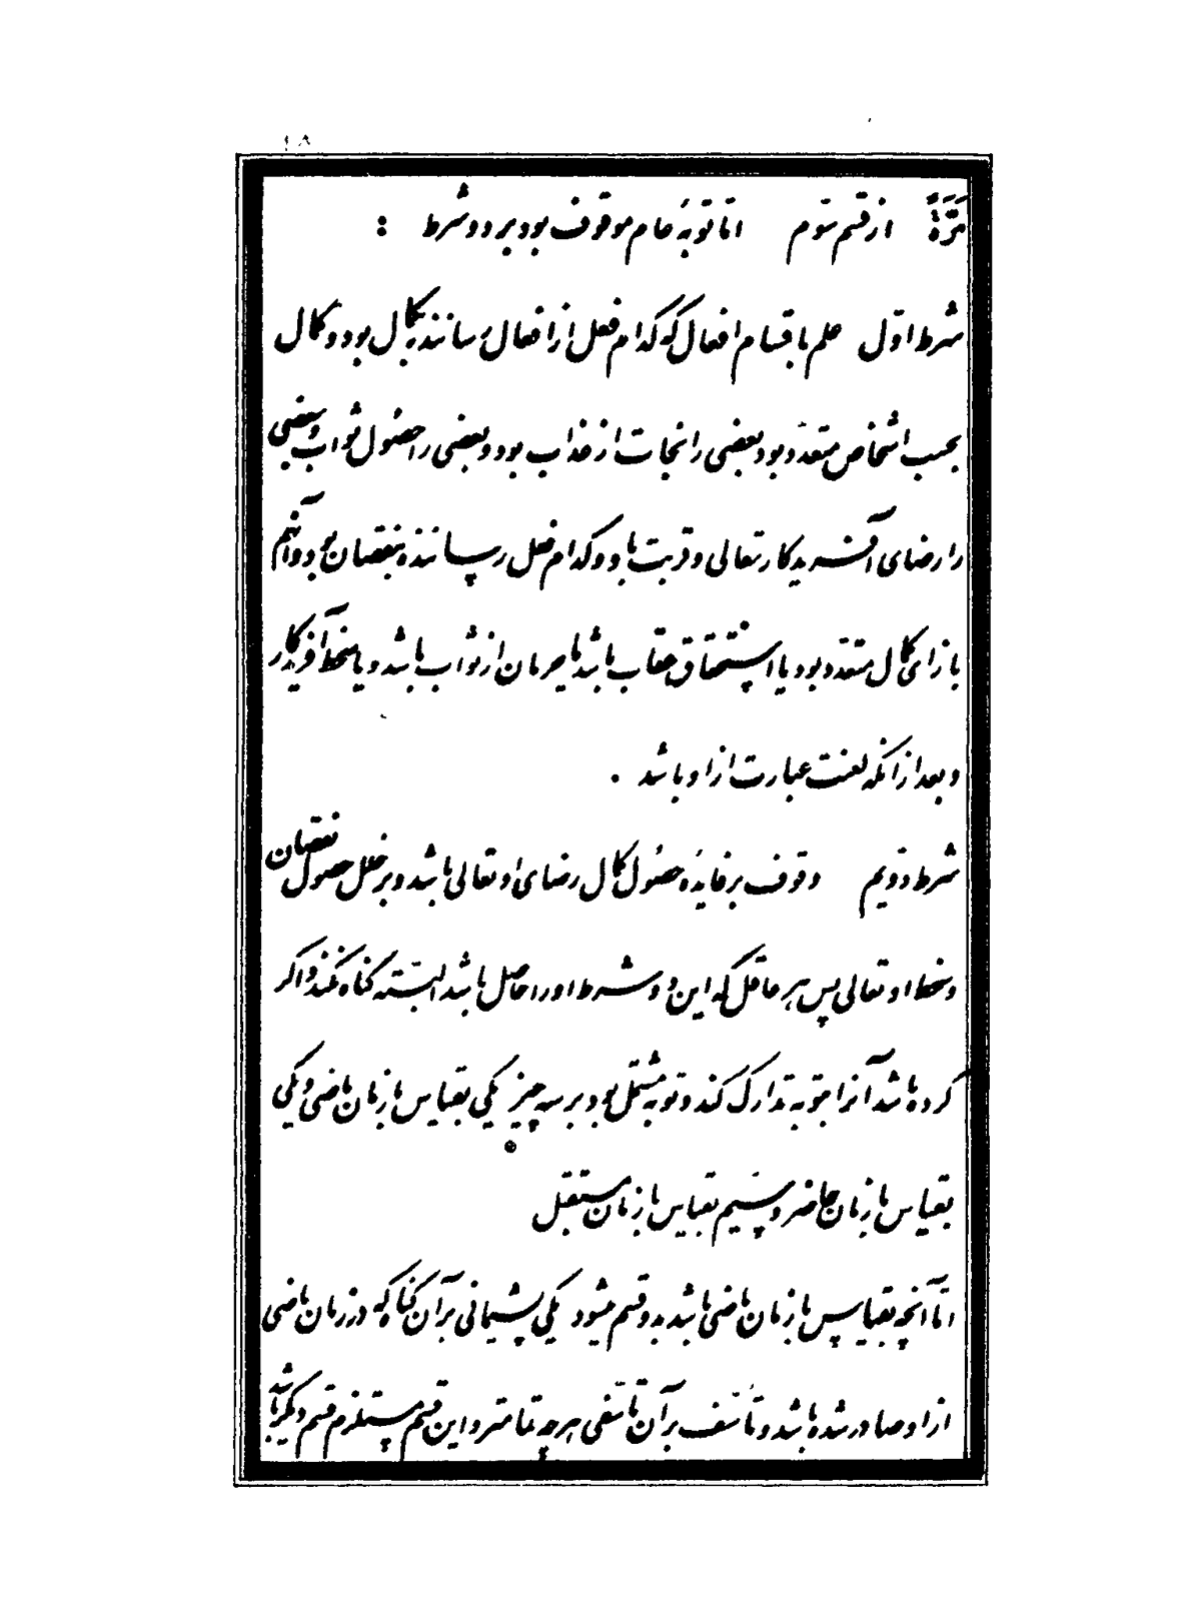 ۱۸
مَرَّةً از قسم سوّم امّا توبهٔ عام موقوف بود بر دو شرط :
شرط اوّل علم باقسام افعال که کدام فعل از افعال رسانندهٔ بکمال بود و کمال
بحسب اشخاص متعدّد بود بعضی را نجات از عذاب بود و بعضی را حصُول ثواب و بعضی
را رضای آفریدکار تعالی و قربت باو و کدام فعل رساننده بنقصان بود و آنهم
بازای کمال متعدّد بود یا استحقاق عقاب باشد یا حرمان از ثواب باشد و یا سخط آفریدکار
و بعد از آنکه لعنت عبارت از او باشد .
شرط دوّیم وقوف بر فایدهٔ حصُول کمال رضای او تعالی باشد و بر خلل حصول نقصان
و سخط او تعالی پس هر عاقل که این دو شرط او را حاصل باشد البتّه کناه نکند و اکر
کرده باشد آنرا بتوبه تدارک کند و توبه مشتمل بود بر سه چیز یکی بقیاس با زمان ماضی و یکی
بقیاس با زمان حاضر و سیّم بقیاس با زمان مستقبل
امّا آنچه بقیاس با زمان ماضی باشد بدو قسم میشود یکی پشیمانی بر آن کناه که در زمان ماضی
از او صادر شده باشد و تأسّف بر آن تأسّفی هر چه تمامتر و این قسم مستلزم قسم دیکر باشد